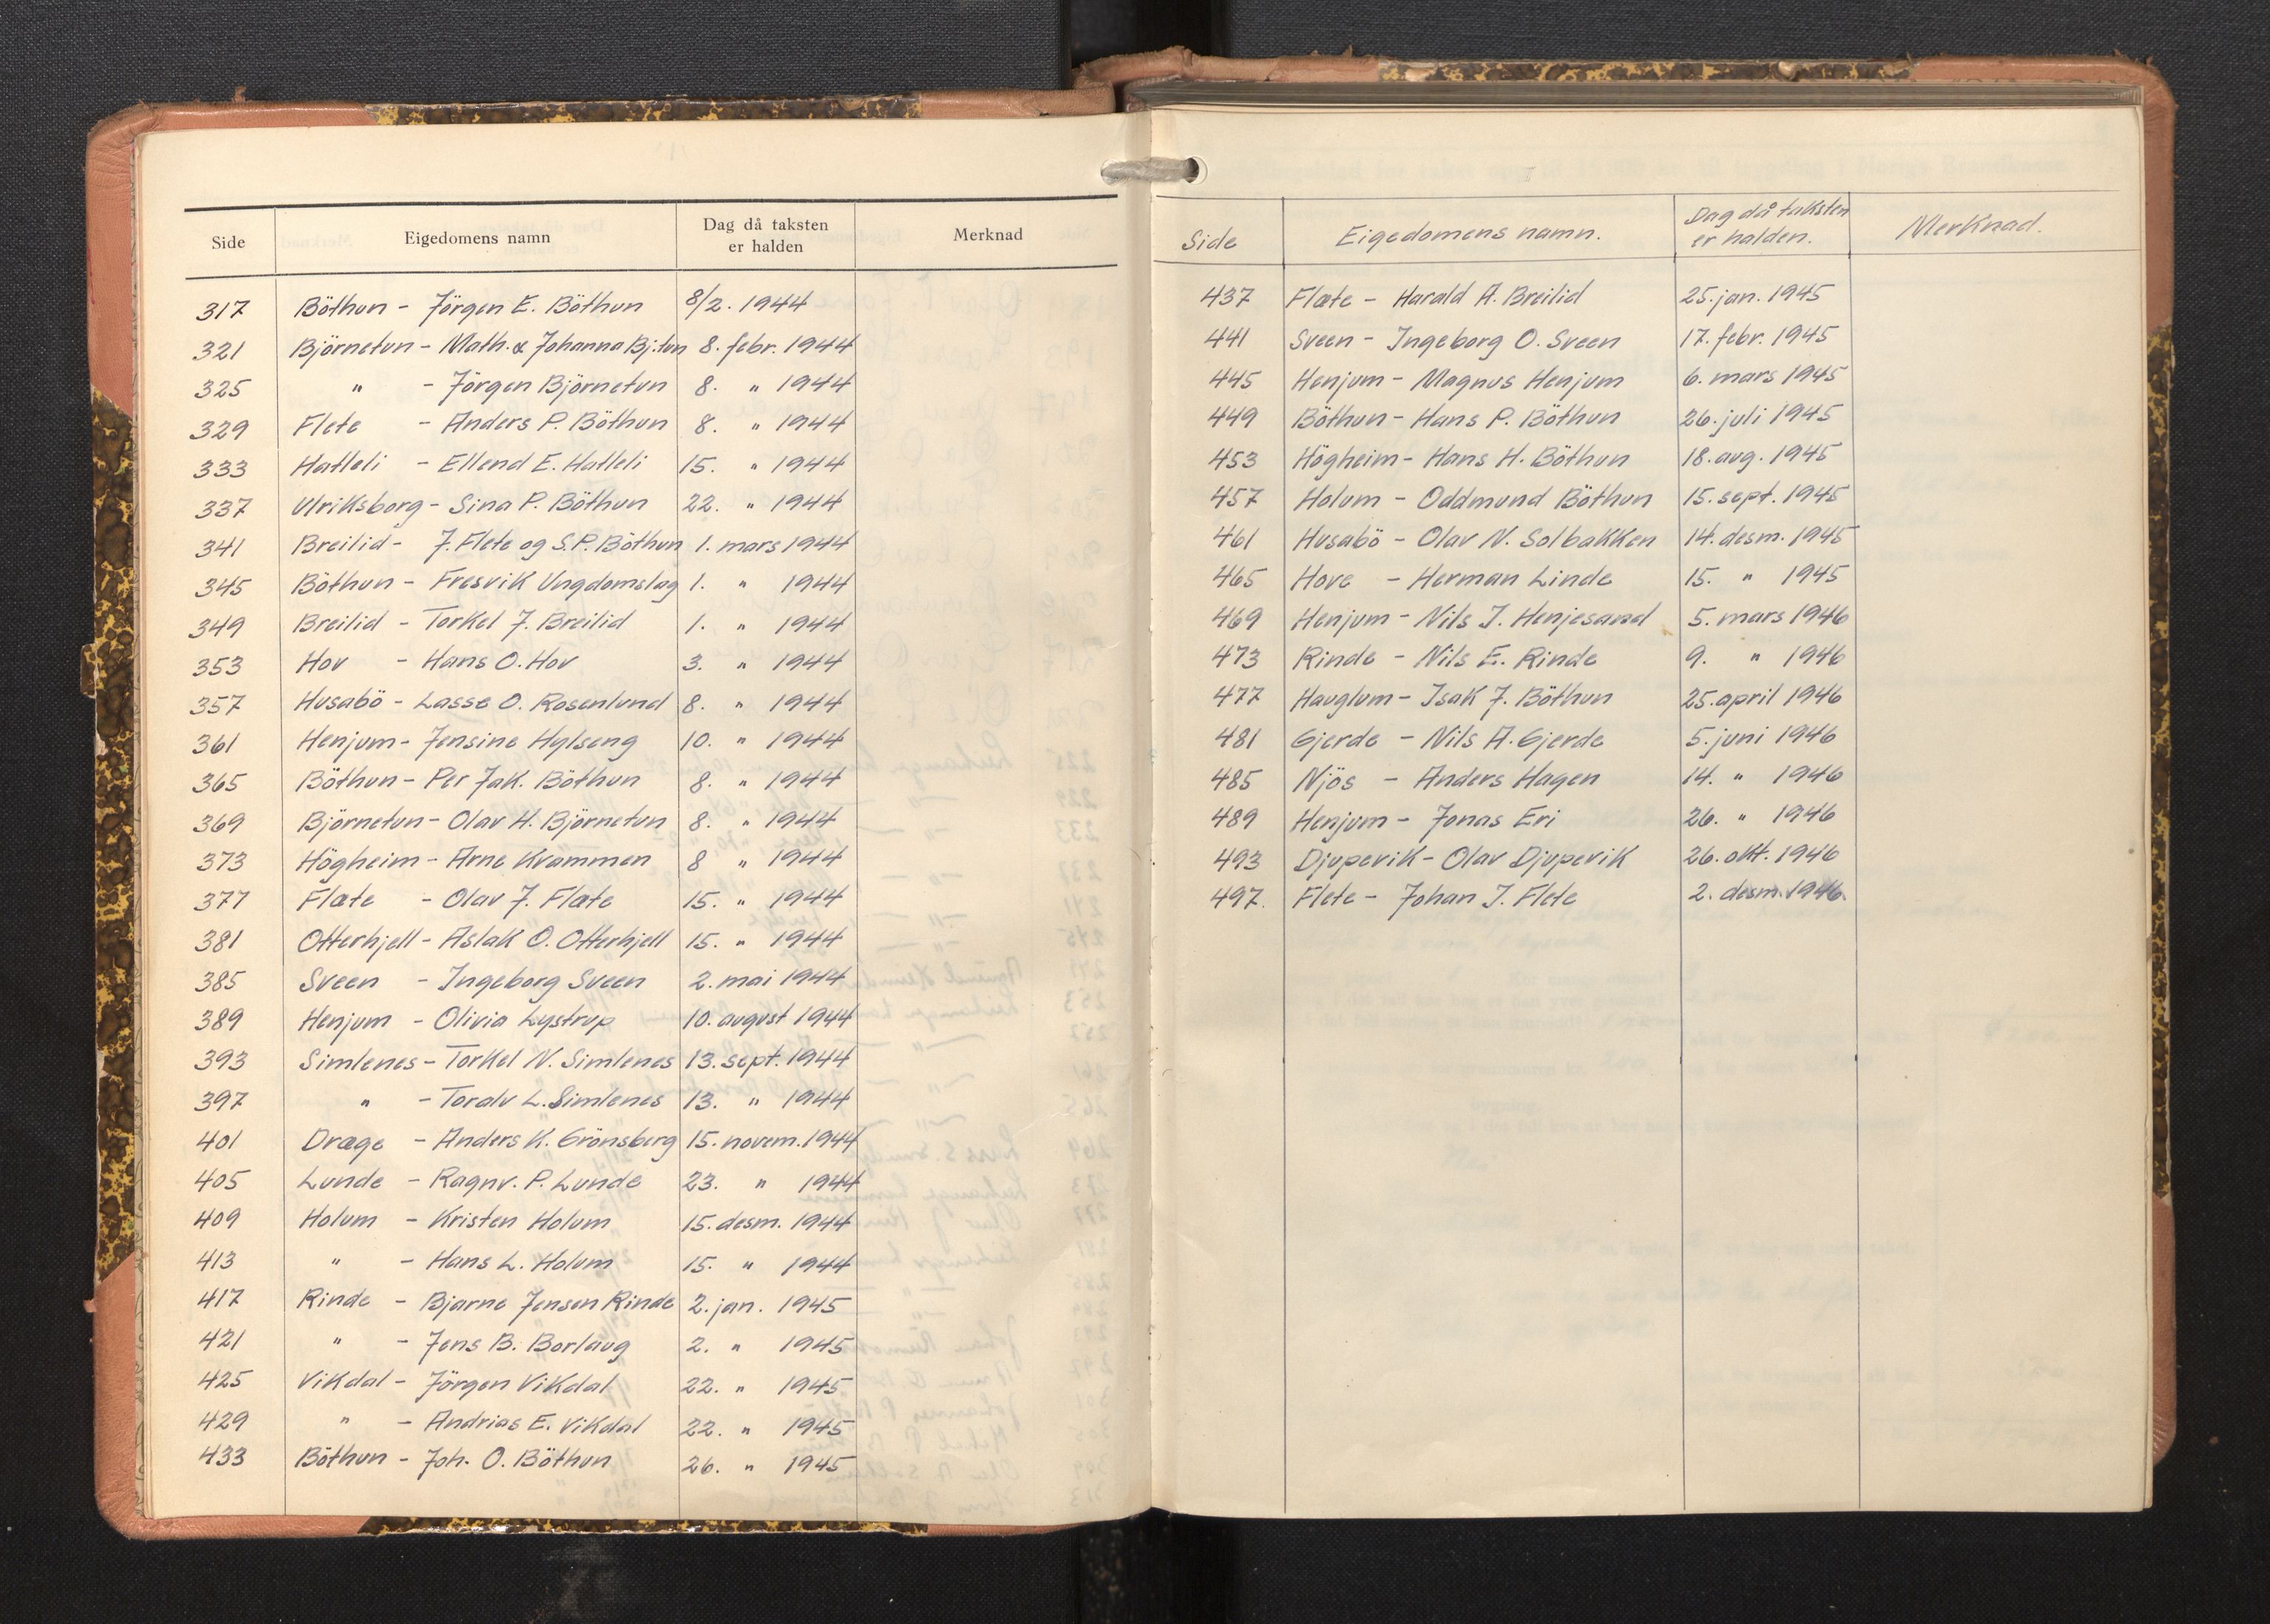 Side Eigedomens namn Dag då taksten er halden Merknad
317 Böthun - Jörgen E. Böthun 8/2. 1944
321 Björnetun - Math. & Johanna Bj:tun 8. febr. 1944
325 " - Jörgen Björnetun 8. " 1944
329 Flete - Anders P. Böthun 8. " 1944
333 Hatleli - Ellend E. Hatleli 15. " 1944
337 Ulriksborg - Sina P. Böthun 22. " 1944
341 Breilid - J. Flete og S.P. Böthun 1. mars 1944
345 Böthun - Fresvik Ungdomslag 1. " 1944
349 Breilid - Torkel J. Breilid 1. " 1944
353 Hov - Hans O. Hov 3. " 1944
357 Husabö - Lasse O. Rosenlund 8. " 1944
361 Henjum - Jensine Hylseng 10. " 1944
365 Böthun - Per Jak. Böthun 8. " 1944
369 Björnetun - Olav H. Björnetun 8. " 1944
373 Högheim - Arne Kvammen 8 " 1944
377 Flæte - Olav J. Flæte 15. " 1944
381 Otterhjell - Aslak O. Otterhjell 15. " 1944
385 Sveen - Ingeborg Sveen 2. mai 1944
389 Henjum - Olivia Lystrup 10. august 1944
393 Simlenes - Torkel N. Simlenes 13. sept. 1944
397 " - Toralv L. Simlenes 13. " 1944
401 Dræge - Anders K. Grönsberg 15. novem. 1944
405 Lunde - Ragnv. P. Lunde 23. " 1944
409 Holum - Kristen Holum 15. desm. 1944
413 " - Hans L. Holum 15. " 1944
417 Rinde - Bjarne Jensen Rinde 2. jan. 1945
421 " - Jens B. Borlaug 2. " 1945
425 Vikdal - Jörgen Vikdal 22. " 1945
429 " - Andrias E. Vikdal 22. " 1945
433 Böthun - Joh. O. Böthun 26. " 1945
Side Eigedomens namn. Dag då taksten er halden. Merknad.
437 Flæte - Harald A. Breilid 25. jan. 1945
441 Sveen - Ingeborg O. Sveen 17. febr. 1945
445 Henjum - Magnus Henjum 6. mars 1945
449 Böthun - Hans P. Böthun 26. juli 1945
453 Högheim - Hans H. Böthun 18. aug. 1945
457 Holum - Oddmund Böthun 15. sept. 1945
461 Husabö - Olav N. Solbakken 14. desm. 1945
465 Hove - Herman Linde 15. " 1945
469 Henjum - Nils J. Henjesand 5. mars 1946
473 Rinde - Nils E. Rinde 9. " 1946
477 Hauglum - Isak J. Böthun 25. april 1946
481 Gjerde - Nils A. Gjerde 5. juni 1946
485 Njös - Anders Hagen 14. " 1946
489 Henjum - Jonas Eri 26. " 1946
493 Djupevik - Olav Djupevik 26. okt. 1946
497. Flete - Johan J. Flete 2. desm. 1946.